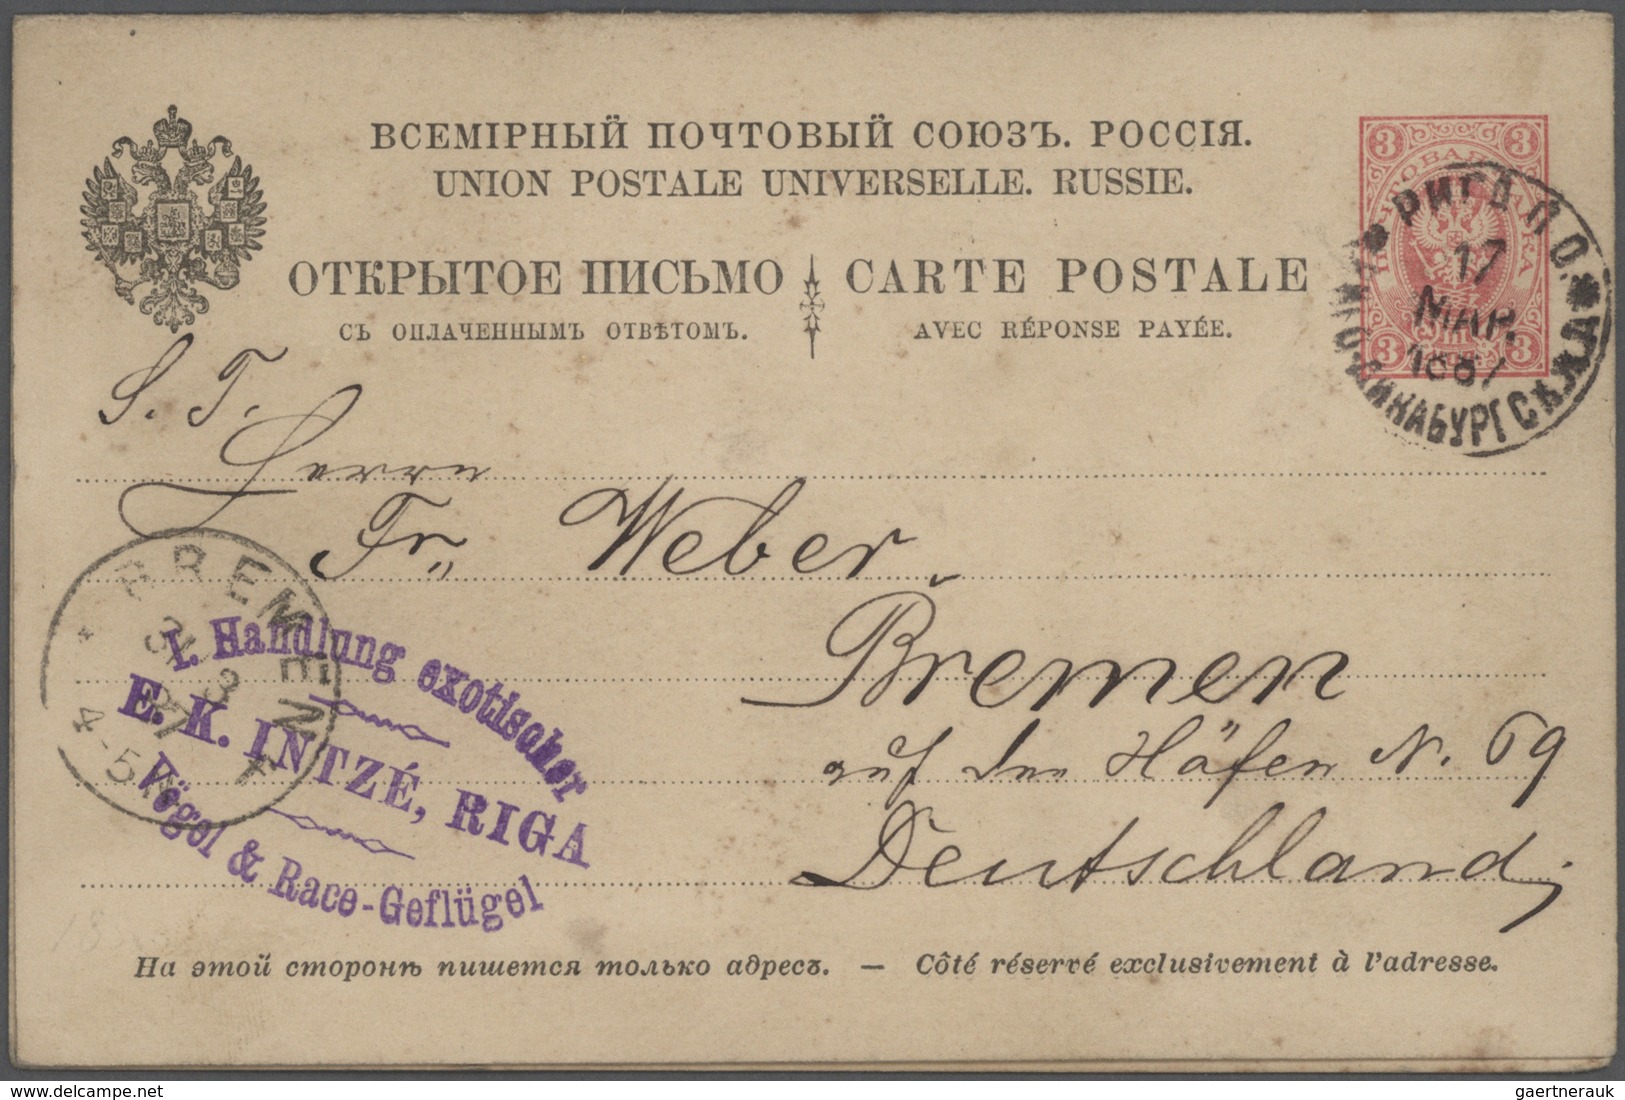 ВСЕМІРНЫЙ ПОЧТОВЫЙ СОЮЗЪ. РОССІЯ.
UNION POSTALE UNIVERSELLE. RUSSIE.
ОТКРЫТОЕ ПИСЬМО
СЪ ОПЛАЧЕННЫМЪ ОТВѢТОМЪ.
CARTE POSTALE
AVEC RÉPONSE PAYÉE.
3 3
ПОЧТОВАЯ МАРКА
3 3
РИГА П.О.
17
МАР.
1887
S. T.
Herrn
Fr. Weber.
Bremen
auf den Häfen N. 69
Deutschland,
BREMEN
31
3
87
4-5N
I. Handlung exotischer
E. K. INTZÉ, RIGA
Vögel & Race-Geflügel
На этой сторонѣ пишется только адресъ. — Côté réservé exclusivement à l'adresse.
gaertnerauk @ delcampe.net